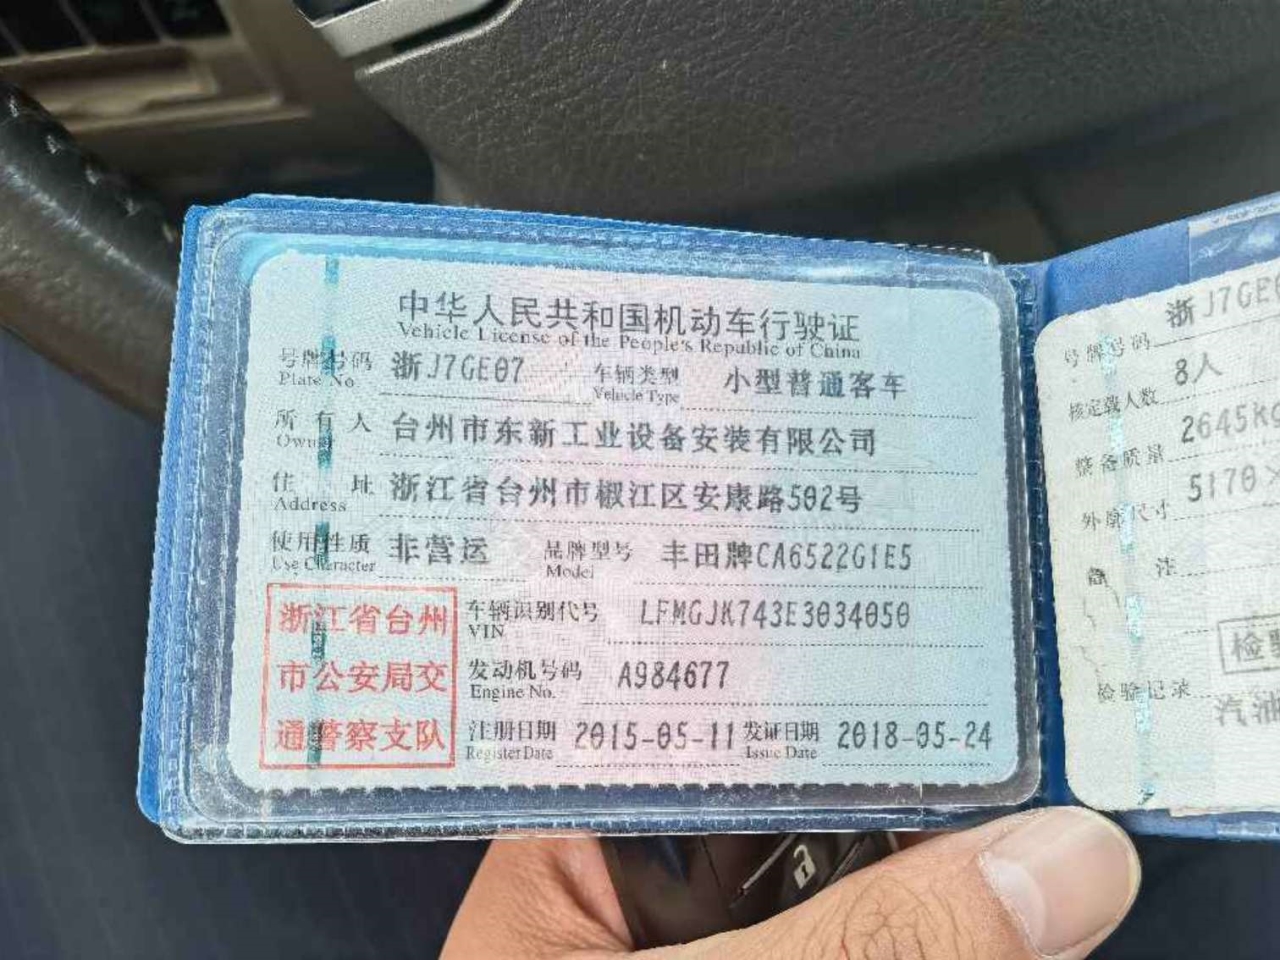 中华人民共和国机动车行驶证
Vehicle License of the People's Republic of China
号牌号码 浙J7GE07 车辆类型 小型普通客车
Plate No Vehicle Type
所有人 台州市东新工业设备安装有限公司
Owner
住址 浙江省台州市椒江区安康路502号
Address
使用性质 非营运 品牌型号 丰田牌CA6522G1E5
Use Character Model
浙江省台州
市公安局交
通警察支队
车辆识别代号 LFMGJK743E3034050
VIN
发动机号码 A984677
Engine No.
注册日期 2015-05-11 发证日期 2018-05-24
Register Date Issue Date
号牌号码 浙J7GE
核定载人数 8人
整备质量 2645kg
外廓尺寸 5170×
注
检验记录
检
汽油